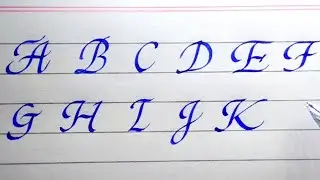 A B C D E F
G H I J K